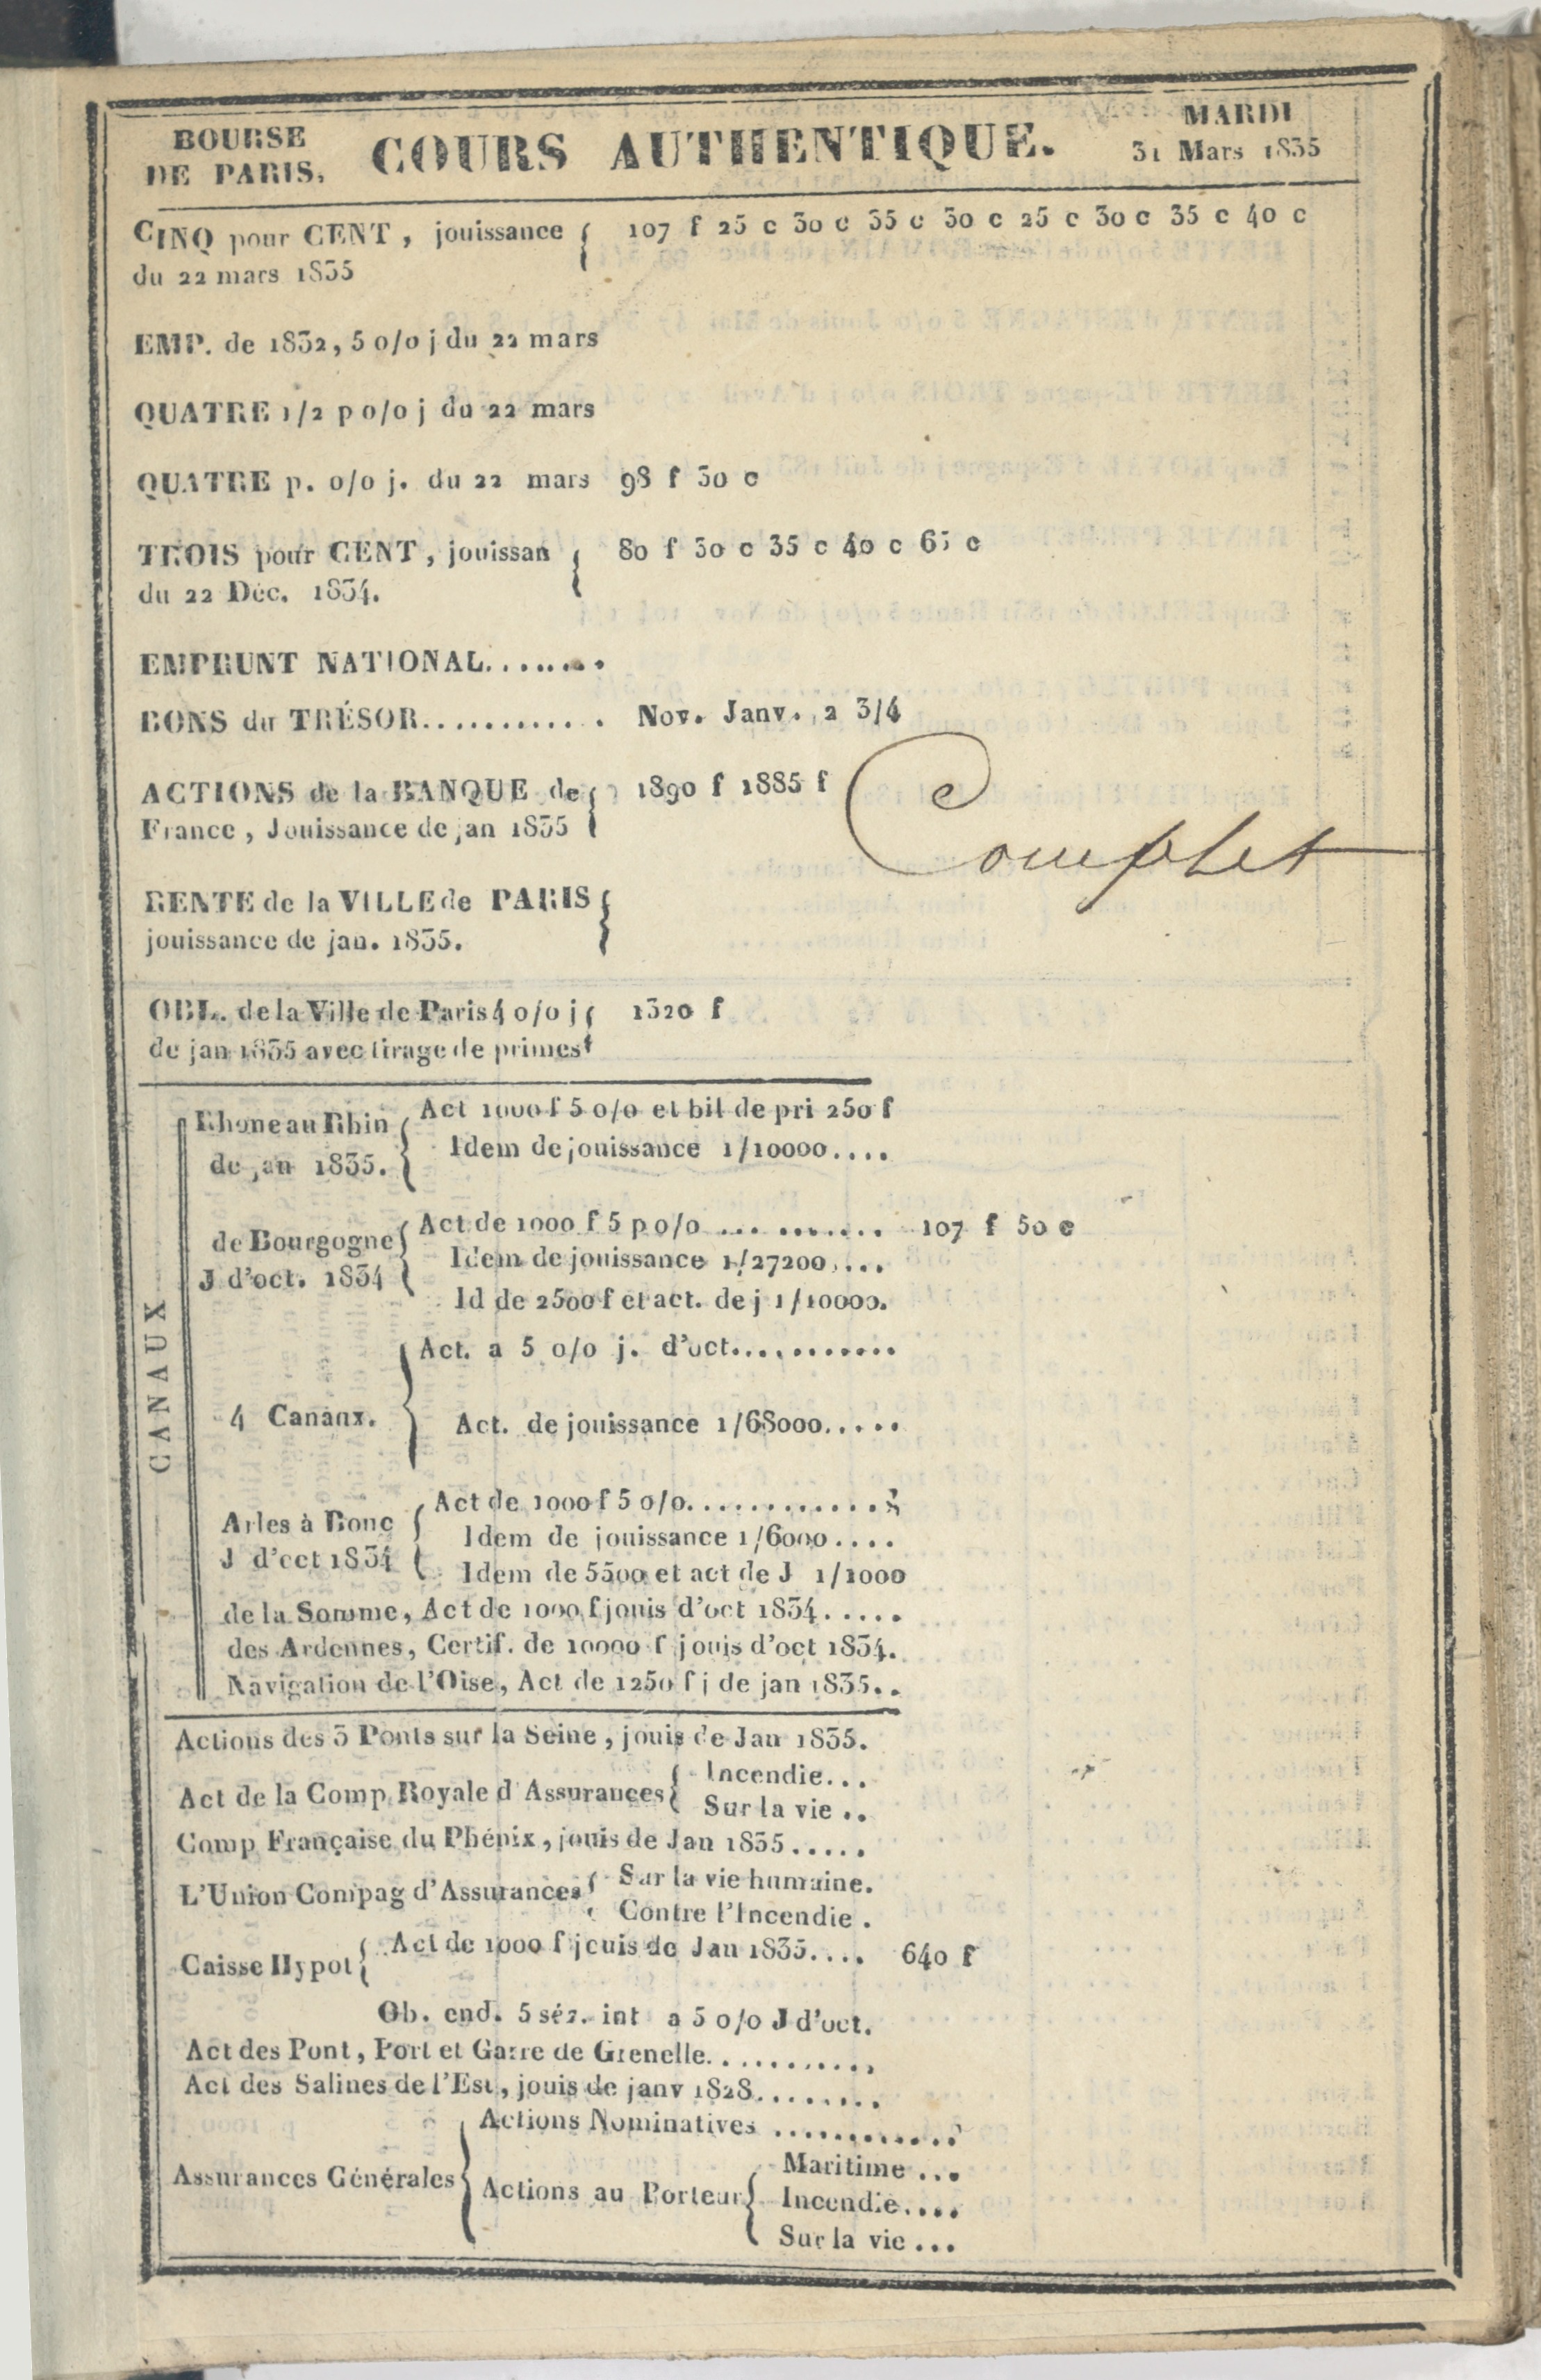 BOURSE
DE PARIS,
COURS AUTHENTIQUE.
MARDI
31 Mars 1835
CINQ pour CENT, jouissance 107 f 25 c 30 c 35 c 30 c 25 c 30 c 35 c 40 c
du 22 mars 1835
EMP. de 1832, 5 o/o j du 22 mars
QUATRE 1/2 p o/o j du 22 mars
QUATRE p. o/o j. du 22 mars 98 f 30 c
TROIS pour CENT, jouissan 80 f 30 c 35 c 40 c 65 c
du 22 Déc. 1834.
EMPRUNT NATIONAL........
BONS du TRÉSOR............ Nov. Janv. 2 3/4
ACTIONS de la BANQUE de 1890 f 1885 f
France, Jouissance de jan 1835
Complet
RENTE de la VILLE de PARIS
jouissance de jan. 1835.
OBL. de la Ville de Paris 4 o/o j 1320 f
de jan 1835 avec tirage de primes
CANAUX
Rhone au Rhin
de jan 1835.
Act 1000 f 5 o/o et bil de pri 250 f
Idem de jouissance 1/10000....
de Bourgogne
J d'oct. 1834
Act de 1000 f 5 p o/o ... ....... 107 f 50 c
Idem de jouissance 1/27200....
Id de 2500 f et act. de j 1/10000.
4 Canaux.
Act. a 5 o/o j. d'oct............
Act. de jouissance 1/68000.....
Arles à Bouc
J d'oct 1834
Act de 1000 f 5 o/o.............
Idem de jouissance 1/6000....
Idem de 5500 et act de J 1/1000
de la Somme, Act de 1000 f jouis d'oct 1834.....
des Ardennes, Certif. de 10000 f jouis d'oct 1834.
Navigation de l'Oise, Act de 1250 f j de jan 1835..
Actions des 3 Ponts sur la Seine, jouis de Jan 1835.
Act de la Comp Royale d'Assurances
Incendie...
Sur la vie..
Comp Française du Phénix, jouis de Jan 1835.....
L'Union Compag d'Assurances
Sur la vie humaine.
Contre l'Incendie.
Caisse Hypot Act de 1000 f jouis de Jan 1835.... 640 f
Ob. end. 5 int a 5 o/o J d'oct.
Act des Pont, Port et Garre de Grenelle...........
Act des Salines de l'Est, jouis de janv 1828........
Assurances Générales
Actions Nominatives ............
Actions au Porteur
Maritime...
Incendie....
Sur la vie...